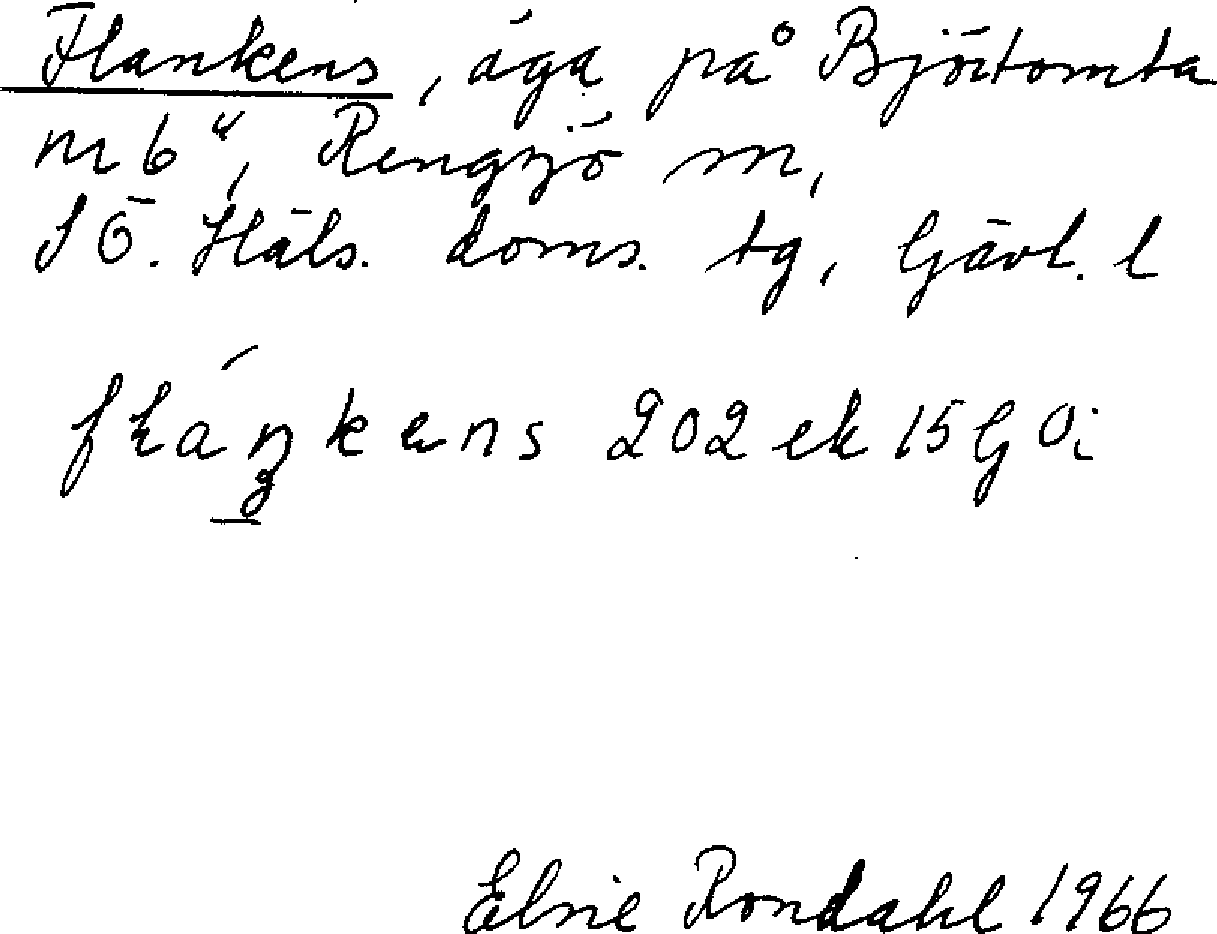 Flankens, äga på Björtomta
nr 6", Rengsjö sn,
SÖ. Häls. doms. tg, Gävl. l
202 ek 15G 0i
Elsie Rondahl 1966